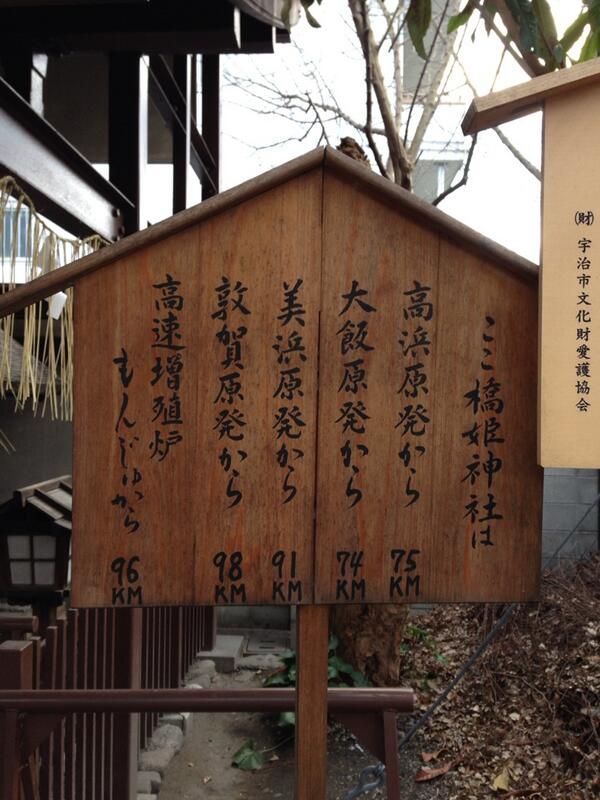 ここ橋姫神社は
高浜原発から 75KM
大飯原発から 74KM
美浜原発から 91KM
敦賀原発から 98KM
高速増殖炉
もんじゅから 96KM
㈶宇治市文化財愛護協会